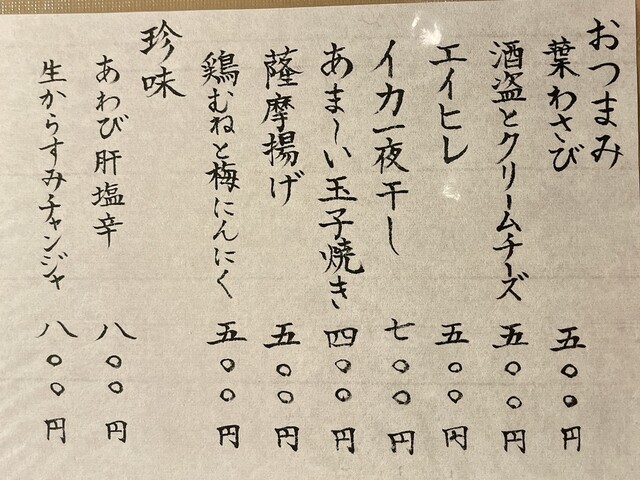 おつまみ
葉わさび 五〇〇円
酒盗とクリームチーズ 五〇〇円
エイヒレ 五〇〇円
イカ一夜干し 七〇〇円
あま〜い玉子焼き 四〇〇円
薩摩揚げ 五〇〇円
鶏むねと梅にんにく 五〇〇円
珍味
あわび肝塩辛 八〇〇円
生からすみチャンジャ 八〇〇円